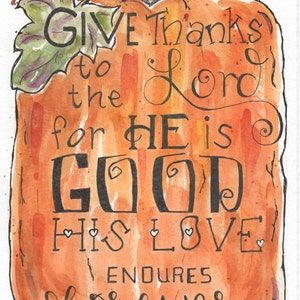 GIVE Thanks
to
the Lord
for HE is
GOOD
HIS LOVE
ENDURES